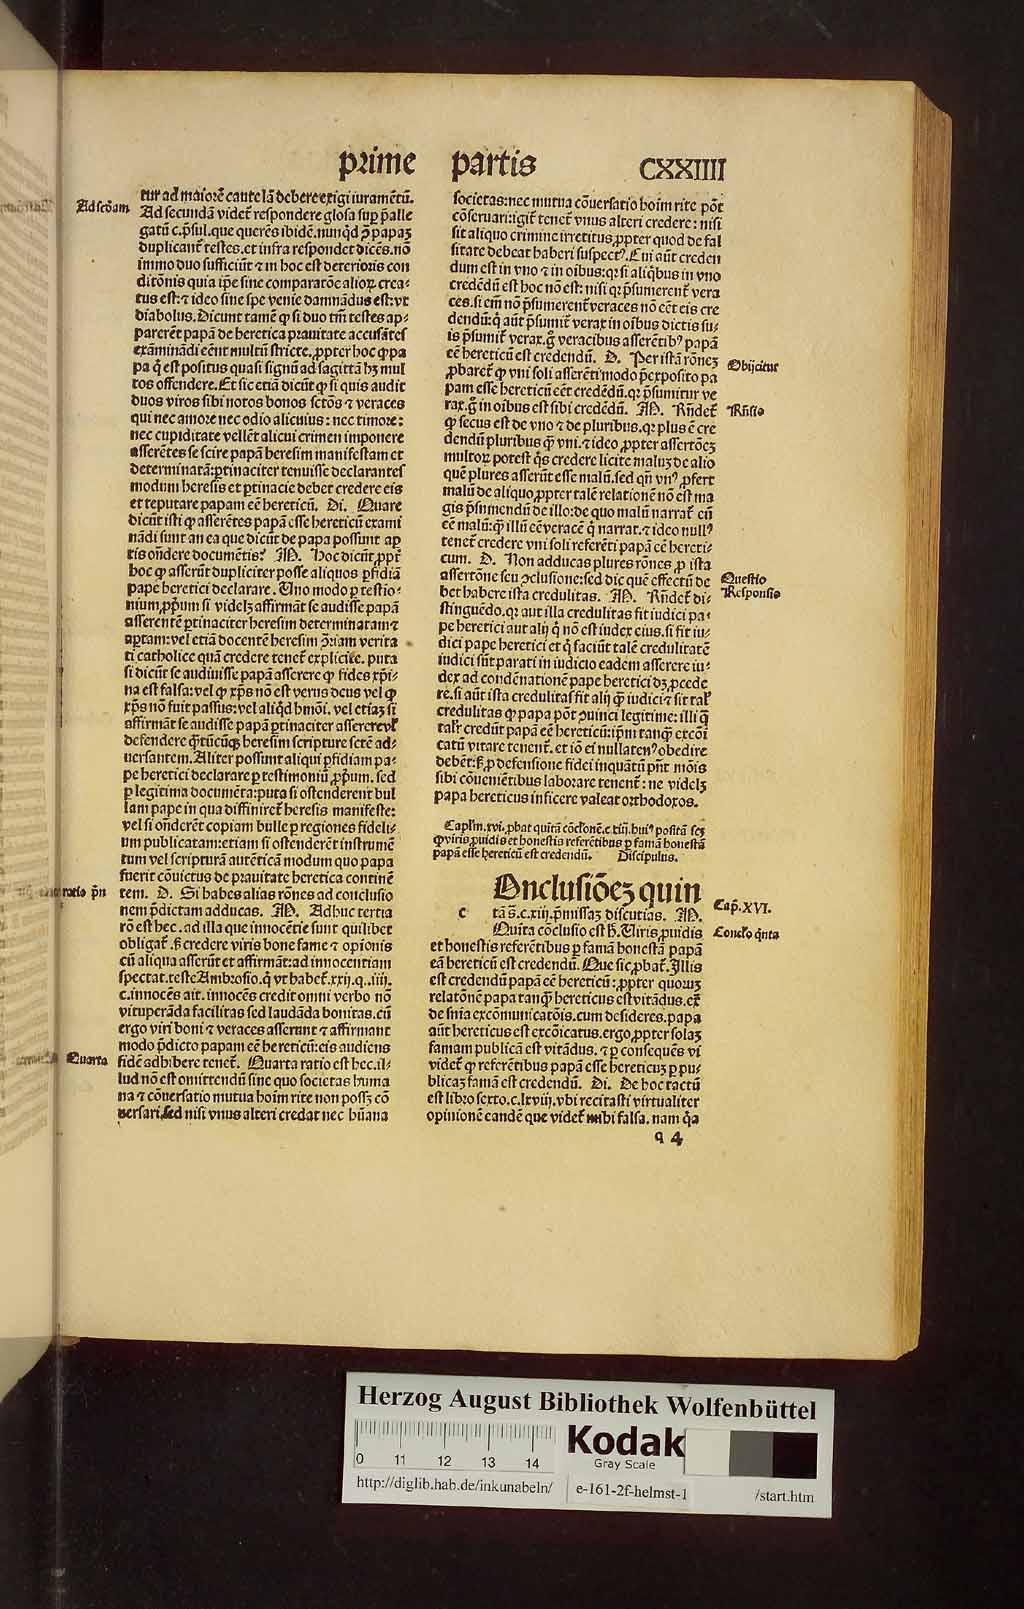 prime partis CXXIIII
tur ad maiorē cautelā debere exigi iuramētū.
Ad scḋam
Ad secundā videt᷒ respondere glosa sup̱ p̄alle
gatū c. p̄sul. que querēs ibidē. nunqd̄ ꝓ papaꝫ
duplicant᷒ testes. et infra respondet dicēs. nō
immo duo sufficiūt ⁊ in hoc est deterioris con
ditōnis quia ip̄e sine comparatōe alioꝝ crea⸗
tus est: ⁊ ideo sine spe venie damnādus est: vt
diabolus. Dicunt tamē ꝙ si duo tm̄ testes ap⸗
parerēt papā de heretica prauitate accusātes
exāminādi eēnt multū stricte. ꝓpter hoc ꝙ pa
pa q̄ est positus quasi signū ad sagittā hꝫ mul
tos offendere. Et sic etiā dicūt ꝙ si quis audit
duos viros sibi notos bonos sctōs ⁊ veraces
qui nec amore nec odio alicuius: nec timore:
nec cupiditate vellēt alicui crimen imponere
asserētes se scire papā heresim manifestam et
determinatā: ꝑtinaciter tenuisse declarantes
modum heresis et ꝑtinacie debet credere eis
et reputare papam eē hereticū. Di. Quare
dicūt isti ꝙ asserētes papā esse hereticū exami
nādi sunt an ea que dicūt de papa possunt ap
tis on̄dere documētis? M. Hoc dicūt ꝓpt᷒
hoc ꝙ asserūt dupliciter posse aliquos ꝑfidiā
pape heretici declarare. Uno modo ꝑ testio⸗
nium ꝓpum si videlꝫ affirmāt se audisse papā
asserentē ꝑtinaciter heresim determinatam ⁊
aꝑtam: vel etiā docentē heresim ꝯ̄riam verita
ti catholice quā credere tenet᷒ explicite. puta
si dicūt se audiuisse papā asserere ꝙ fides xp̄i⸗
na est falsa: vel ꝙ xp̄s nō est verus deus vel ꝙ
xp̄s nō fuit passus: vel aliqd̄ hmōi. vel etiaꝫ si
affirmāt se audisse papā ꝑtinaciter asserere vel
defendere q̄tūcūqꝫ heresim scripture sctē ad⸗
uersantem. Aliter possunt aliqui ꝑfidiam pa⸗
pe heretici declarare ꝑ testimoniū ꝓpum. sed
ꝑ legitima documēta: puta si ostenderent bul
lam pape in qua diffiniret᷒ heresis manifeste:
vel si on̄derēt copiam bulle ꝑ regiones fideli⸗
um publicatam: etiam si ostenderēt instrumē
tum vel scripturā autēticā modum quo papa
fuerit cōuictus de prauitate heretica continē
ratio p̄n
tem. D. Si habes alias rōnes ad conclusio
nem p̄dictam adducas. M. Adhuc tertia
rō est hec. ad illa que innocētie sunt quilibet
obligat᷒. sꝫ credere viris bone fame ⁊ opionis
cū aliqua asserūt et affirmāt: ad innocentiam
spectat. teste Ambrosio. q̄ vt habet᷒. xxij. q. iiij.
c. innocēs ait. innocēs credit omni verbo nō
vituperāda facilitas sed laudāda bonitas. cū
ergo viri boni ⁊ veraces asserunt ⁊ affirmant
modo p̄dicto papam eē hereticū: eis audiens
Quarta
fidē adhibere tenet᷒. Quarta ratio est hec. il⸗
lud nō est omittendū sine quo societas huma
na ⁊ cōuersatio mutua hoīm rite non possꝫ cō
uersari. sed nisi vnus alteri credat nec hūana
societas: nec mutua cōuersatio hoīm rite pōt
cōseruari: igit᷒ tenet᷒ vnus alteri credere: nisi
sit aliquo crimine irretitus ꝓpter quod de fal
sitate debeat haberi suspect᷒. Cui aūt creden
dum est in vno ⁊ in oībus: qꝛ si aliqbus in vno
credēdū est hoc nō est: nisi qꝛ p̄sumerent᷒ vera
ces. si em̄ nō p̄sumerent᷒ veraces nō eēt eis cre
dendū: q̄ aūt p̄sumit᷒ verax in oībus dictis su⸗
is p̄sumit᷒ verax. g̊ veracibus asserētib᷒ papā
eē hereticū est credendū. D. Per istā rōneꝫ
Obijcitur
ꝓbaret᷒ ꝙ vni soli asserēti modo p̄exposito pa
pam esse hereticū eēt credēdū. qꝛ p̄sumitur ve
rax. g̊ in oībus est sibi credēdū. M. Rn̄det᷒
Rn̄sio
ꝙ secus est de vno ⁊ de pluribus. qꝛ plus ē cre
dendū pluribus q̄ vni. ⁊ ideo ꝓpter assertōeꝫ
multoꝝ potest q̄s credere licite maluꝫ de alio
quē plures asserūt esse malū. sed qn̄ vn᷒ ꝓfert
malū de aliquo ꝓpter talē relationē nō est ma
gis p̄sumendū de illo: de quo malū narrat᷒ eū
eē malū: q̄ illū eē veracē q̄ narrat. ⁊ ideo null᷒
tenet᷒ credere vni soli referēti papā eē hereti⸗
cum. D. Non adducas plures rōnes ꝓ ista
Questio
assertōne seu ꝯclusione: sed dic quē effectū de
Responsio
bet habere ista credulitas. M. Rn̄det᷒ di⸗
stinguēdo. qꝛ aut illa credulitas fit iudici pa⸗
pe heretici aut alij q̄ nō est iudex eius. si fit iu⸗
dici pape heretici et q̄ faciūt talē credulitatē
iudici sūt parati in iudicio eadem asserere iu⸗
dex ad condēnationē pape heretici dꝫ ꝓcede
re. si aūt ista credulitas fit alij q̄ iudici ⁊ sit tal᷒
credulitas ꝙ papa pōt ꝯuinci legitime: illi q̄
talr̄ credūt papā eē hereticū: ip̄m tanq̄ excōi
catū vitare tenent᷒. et iō ei nullaten᷒ obedire
debēt: sꝫ ꝓ defensione fidei inquātū pn̄t mōis
sibi cōuenietibus laborare tenent᷒: ne videlꝫ
papa hereticus inficere valeat orthodoxos.
Caplm̄. xvi. ꝓbat quītā cōclōnē. c. xiij. hui᷒ positā scꝫ
ꝙ viris ꝓuidis et honestis referētibus ꝑ famā honestā
papā esse hereticū est credendū. Discipulus.
Cap̄. XVI.
Onclusiōeꝫ quin
c
tā s̄. c. xiij. p̄missaꝫ discutias. M.
Conclo q̄nta
Quīta cōclusio est h̄. Uiris ꝓuidis
et honestis referētibus ꝑ famā honestā papā
eā hereticū est credendū. Que sic ꝓbat᷒. Illis
est credendū papā eē hereticū: ꝓpter quoruꝫ
relatōnē papa tanq̄ hereticus est vitādus. ex᷒
de sn̄ia excōmunicatōis. cum desideres. papa
aūt hereticus est excōicatus. ergo ꝓpter solaꝫ
famam publicā est vitādus. ⁊ ꝑ consequēs vi
videt᷒ ꝙ referētibus papā esse hereticuꝫ ꝑ pu⸗
blicaꝫ famā est credendū. Di. De hoc tactū
est libro sexto. c. lxviij. vbi recitasti virtualiter
opinionē eandē que videt᷒ mihi falsa. nam q̄a
q 4
Herzog August Bibliothek Wolfenbüttel
0 11 12 13 14
Kodak
Gray Scale
http://diglib.hab.de/inkunabeln/ e-161-2f-helmst-1 /start.htm